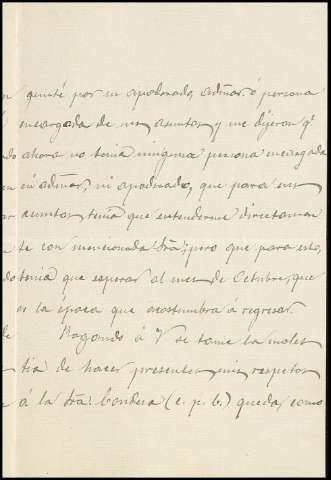 quinté por su apoderado, admor. ó persona
encargada de sus asuntos y me dijeron qe
ahora no tenia ninguna persona encargada
su admor, ni apoderado, que para sus
asuntos tenia que entenderme directamen
te con mencionada Sra; pero que para esto,
tenia que esperar al mes de Octubre, que
es la época que acostumbra á regresar.
Rogando á V se tome la moles
tia de hacer presentes mis respetos
á la Sra. Condesa (c. p. b.) queda, como